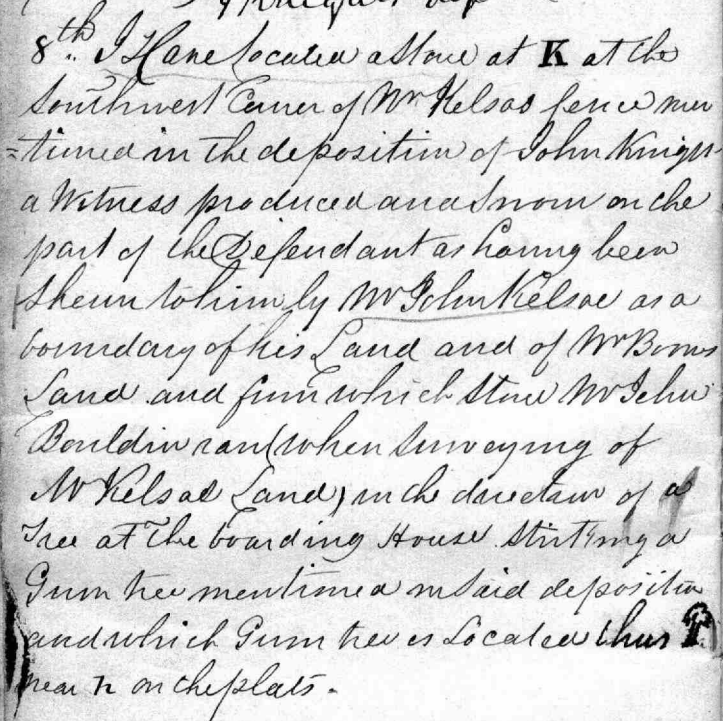 8th. I Have Located a Stone at K at the
Southwest Corner of Mr Kelsos fence men
=tioned in the deposition of John Knight
a Witness produced and Sworn on the
part of the Defendant as having been
Shewn to him by Mr John Kelsoe as a
boundary of his Land and of Mr Bonds
Land and from which Stone Mr John
Bouldin ran (when Surveying of
Mr Kelsoe Land) in the direction of a
Tree at The boarding House Striking a
Gum tree mentioned in Said deposition
and which Gum tree is Located thus
near n on the plats.